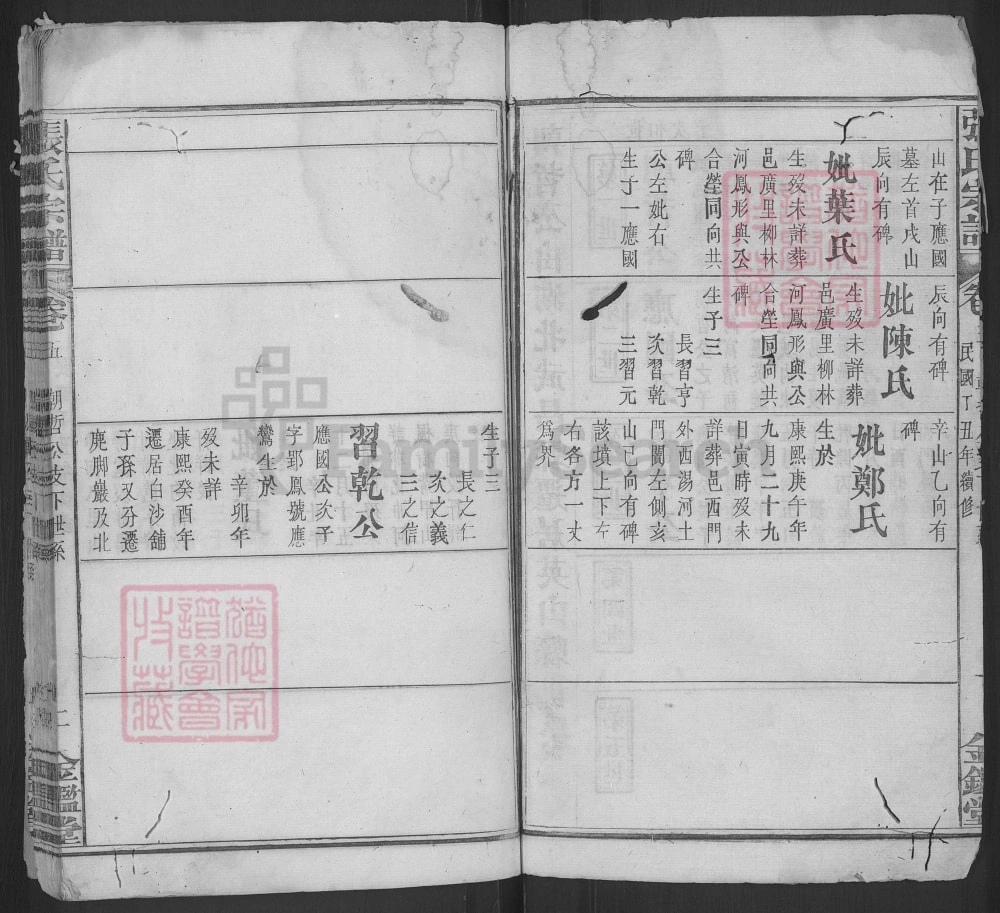 張氏宗譜
民國丁丑年續修
金鑑堂
山在子應國
墓左首戌山
辰向有碑
妣葉氏
生歿未詳葬
邑廣里柳林
河鳳形與公
合塋同向共
碑
公左妣右
生子一應國
辰向有碑
妣陳氏
生歿未詳葬
邑廣里柳林
河鳳形與公
合塋同向共
碑
生子三
長習亨
次習乾
三習元
辛山乙向有
碑
妣鄭氏
生於
康熙庚午年
九月二十九
日寅時歿未
詳葬邑西門
外西湯河土
門閞左側亥
山己向有碑
該墳上下左
右各方一丈
為界
生子三
長之仁
次之義
三之信
習乾公
應國公次子
字郢鳳號應
鸞生於
辛卯年
歿未詳
康熙癸酉年
遷居白沙舖
子孫又分遷
麂脚巖及北
張氏宗譜
卷五
朝哲公支下世系
二
金鑑堂
猶他家
譜學會
收藏